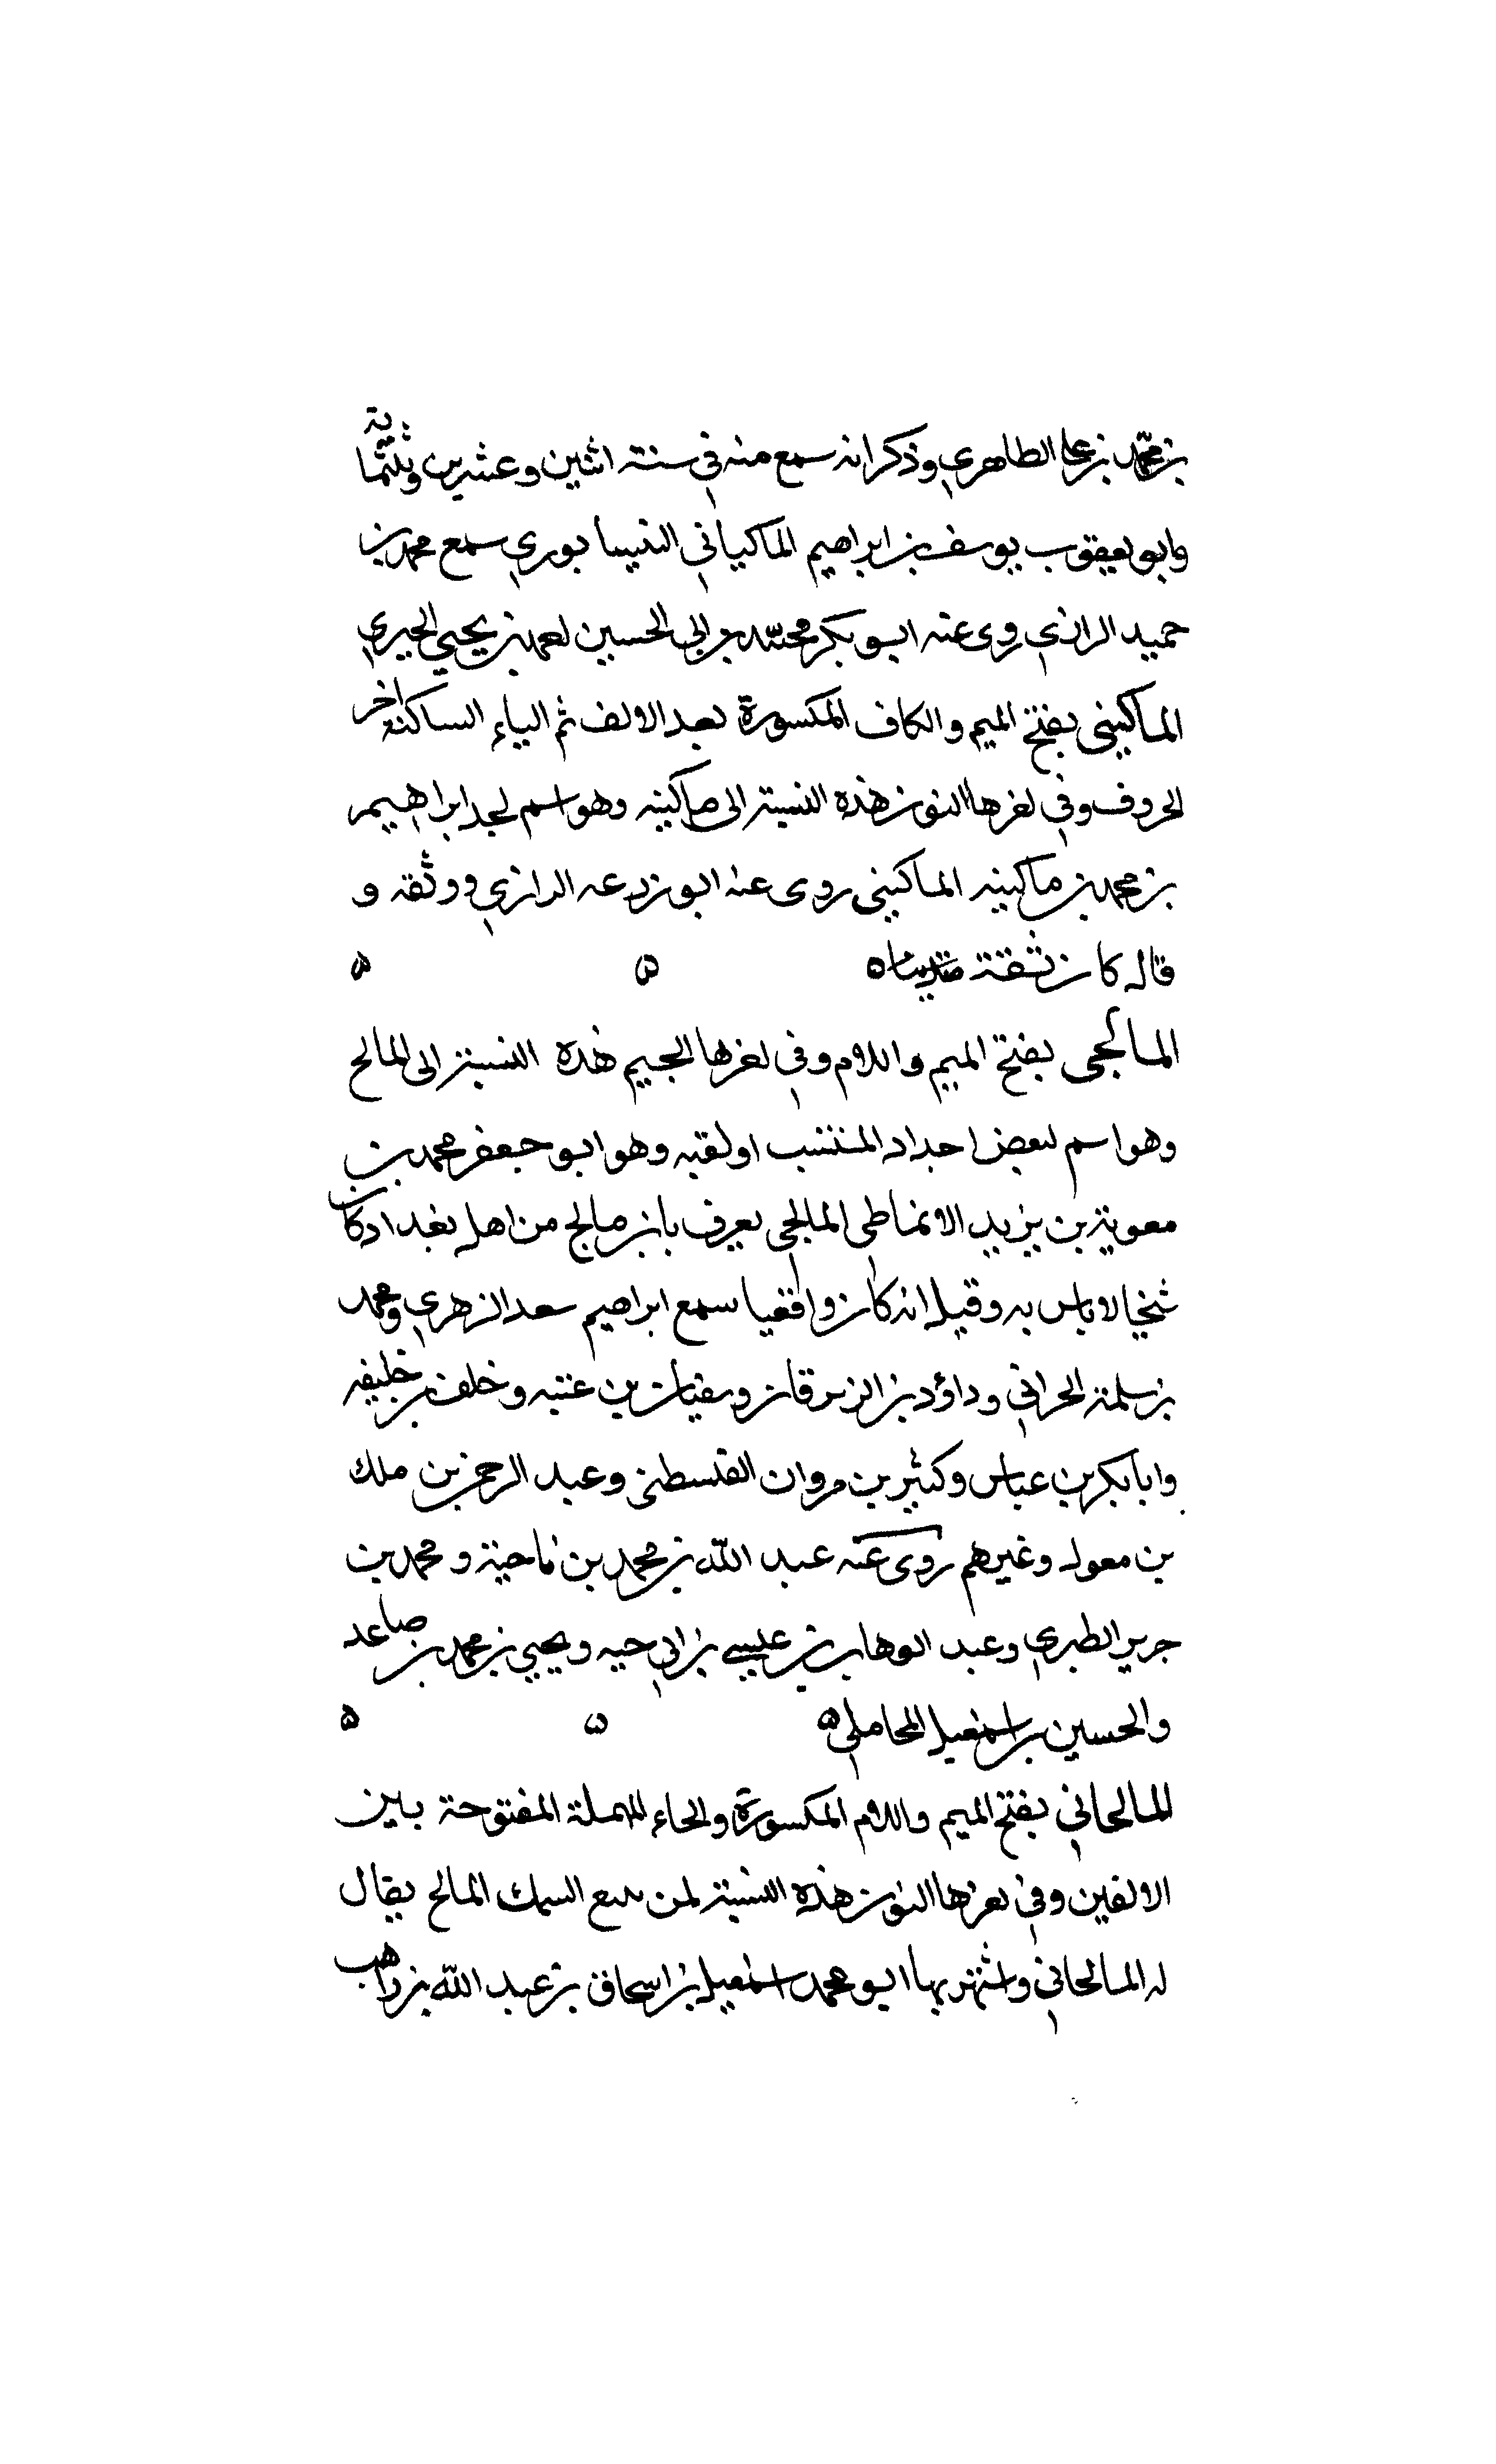 بن محمد بن على الطاهري وذكر انه سمع منه في سنة اثنين وعشرين وثلثماية
وابو يعقوب يوسف بن ابراهيم الماكياني النيسابوري سمع محمد بن
حميد الرازي روى عنه ابو بكر محمد بن ابي الحسين احمد بن يحيي الحيري
الماكيني بفتح الميم والكاف المكسورة بعد الالف ثم الياء الساكنة اخر
الحروف وفي اخرها النون هذه النسبة الى ماكينه وهو اسم لجد ابراهيم
بن محمد بن ماكينه الماكيني روى عنه ابو زرعه الرازي ووثقه و
قال كان ثقة صدوقا ه ه ه
المالجى بفتح الميم واللام وفي اخرها الجيم هذه النسبة الى المالج
وهو اسم لبعض اجداد المنتسب او لقبه وهو ابو جعفر محمد بن
معوية بن يزيد الانماطى المالجى يعرف بابن مالج من اهل بغداد كان
شيخا لا باس به وقيل انه كان واقفيا سمع ابراهيم سعد الزهري ومحمد
بن سلمة الحراني وداؤد بن الزبرقان وسفيان بن عتبه وخلف بن خليفه
وابا بكر بن عباس وكثير بن مروان الفلسطني وعبد الرحمن بن ملك
بن معول وغيرهم روى عنه عبد الله بن محمد بن ناجية و محمد بن
جرير الطبري وعبد الوهاب بن عيسي بن ابي حيه ويحيي بن محمد بن صاعد
والحسين بن اسمعيل المحاملي ه ه ه
المالحاني بفتح الميم واللام المكسورة والحاء المهملة المفتوحة بين
الالفين وفي اخرها النون هذه النسبة لمن يبيع السمك المالح يقال
له المالحاني واشتهر بها ابو محمد اسمعيل بن اسحاق بن عبد الله بن راهب